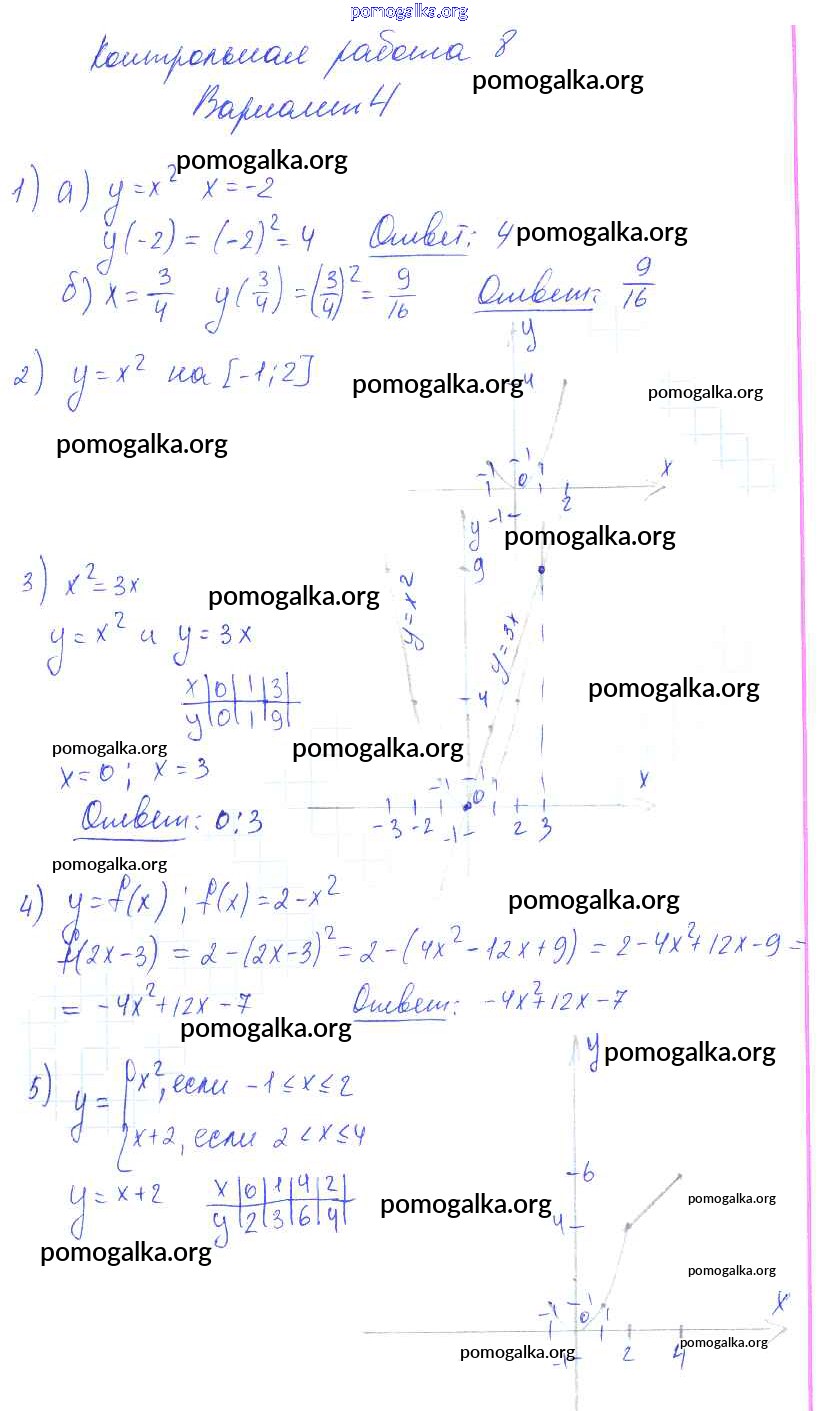 pomogalka.org
Контрольная работа 8
pomogalka.org
Вариант 4
pomogalka.org
1) а) y = x² x = -2
y(-2) = (-2)² = 4 Ответ: 4 pomogalka.org
б) x = 3/4 y(3/4) = (3/4)² = 9/16 Ответ: 9/16
y
2) y = x² на [-1; 2]
pomogalka.org 4
pomogalka.org
pomogalka.org
-1 -1 0 1 x
2
-1
y pomogalka.org
3) x² = 3x
9
pomogalka.org y = x²
y = x² и y = 3x
y = 3x
x 0 1 3
y 0 1 9
4
pomogalka.org
pomogalka.org
pomogalka.org
x = 0; x = 3
-1 -1 0 1 x
Ответ: 0; 3
-3 -2 -1 2 3
pomogalka.org
4) y = f(x); f(x) = 2 - x²
pomogalka.org
f(2x-3) = 2 - (2x-3)² = 2 - (4x² - 12x + 9) = 2 - 4x² + 12x - 9 =
= -4x² + 12x - 7 Ответ: -4x² + 12x - 7
pomogalka.org
y pomogalka.org
5) y = { x², если -1 ≤ x ≤ 2
x + 2, если 2 < x ≤ 4
6
y = x + 2
x 0 1 4 2
y 2 3 6 4
pomogalka.org
pomogalka.org
4
pomogalka.org
pomogalka.org
-1 -1 0 1 x
pomogalka.org
-1 2 4
pomogalka.org